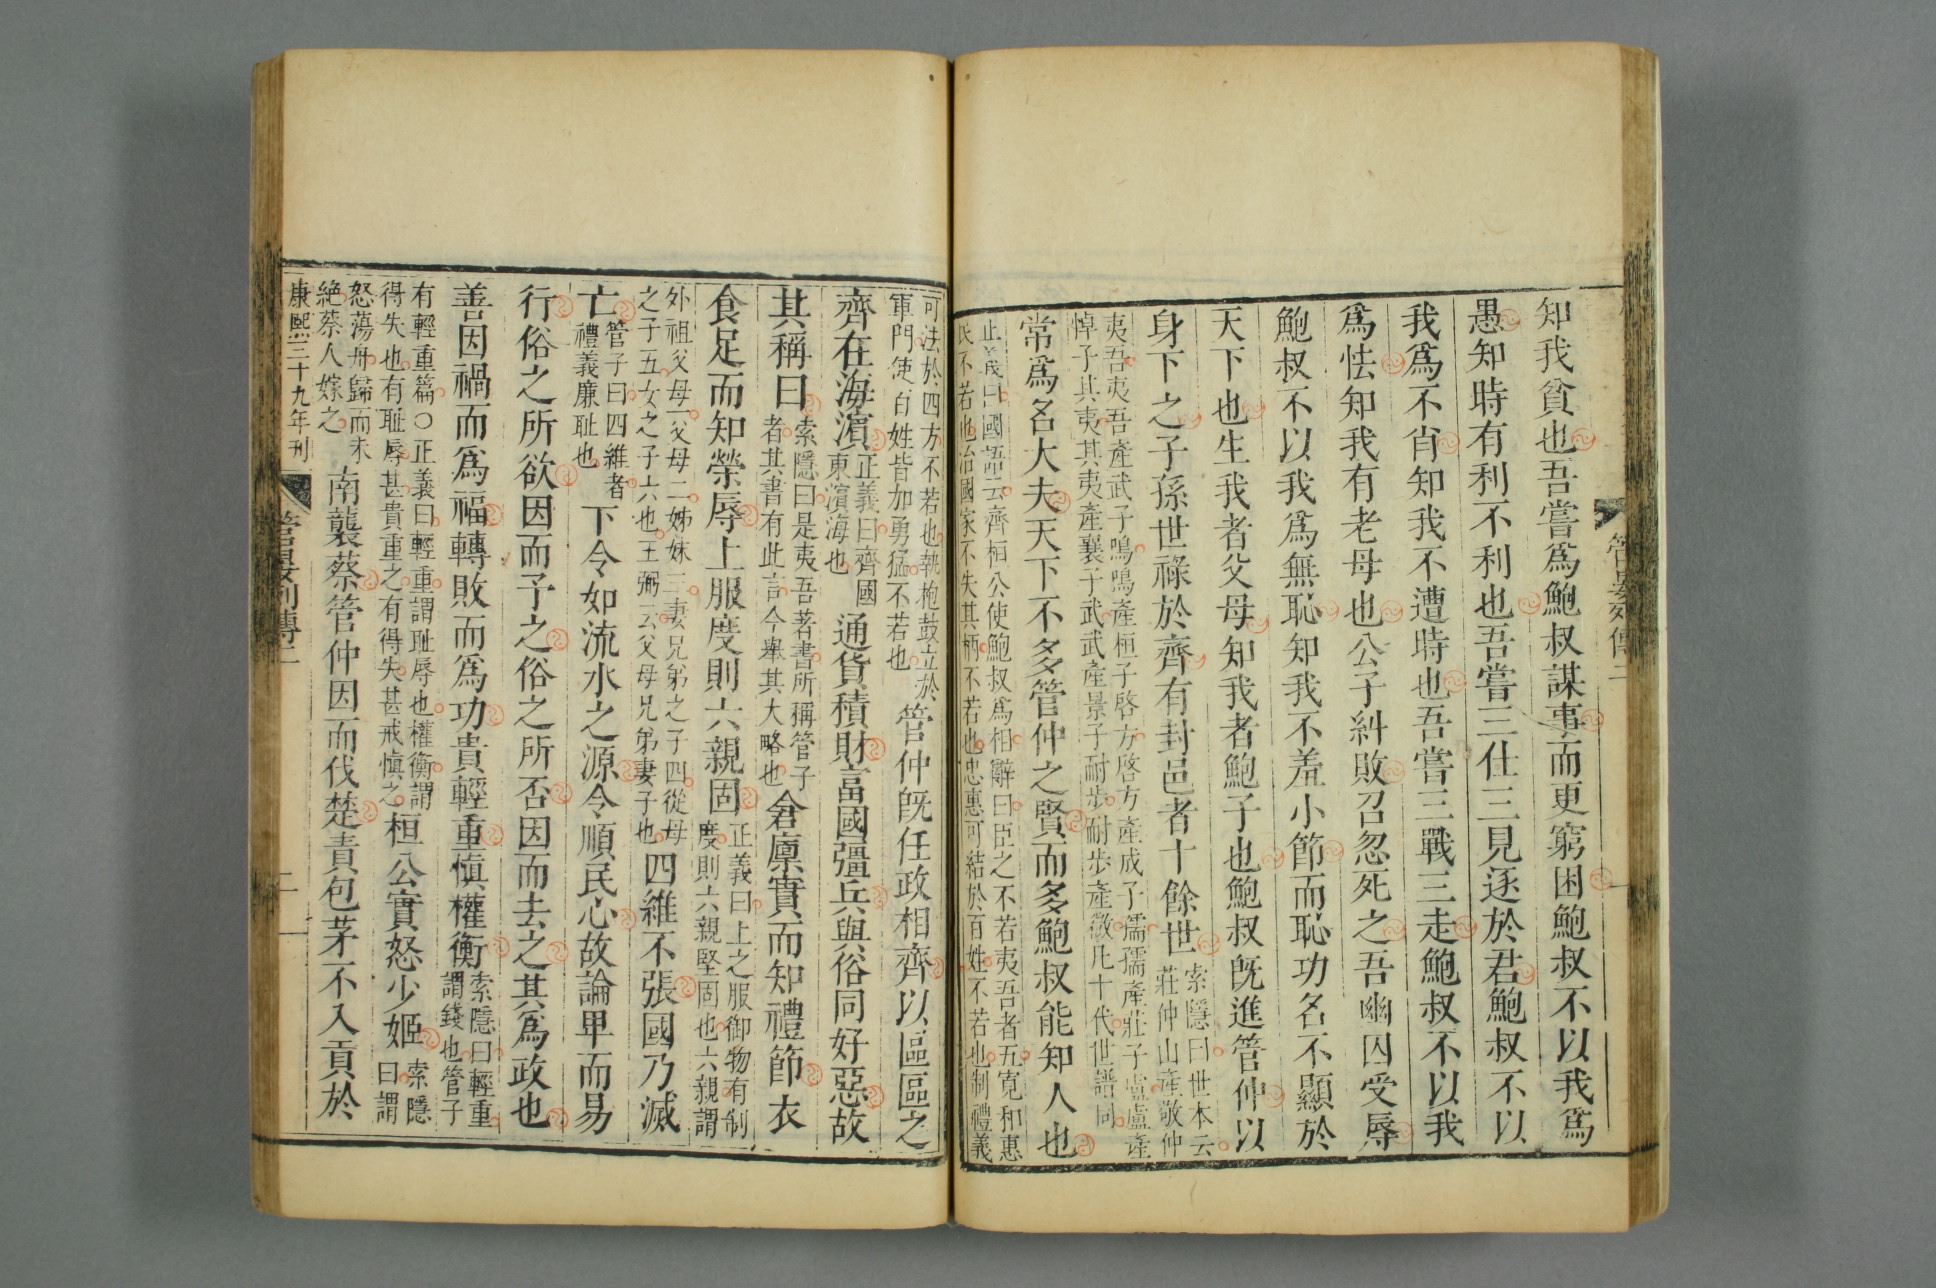 管晏列傳二
知我貧也吾嘗爲鮑叔謀事而更窮困鮑叔不以我爲
愚知時有利不利也吾嘗三仕三見逐於君鮑叔不以
我爲不肖知我不遭時也吾嘗三戰三走鮑叔不以我
爲怯知我有老母也公子糾敗召忽死之吾幽囚受辱
鮑叔不以我爲無恥知我不羞小節而恥功名不顯於
天下也生我者父母知我者鮑子也鮑叔旣進管仲以
身下之子孫世祿於齊有封邑者十餘世索隱曰世本云莊仲山產敬仲
夷吾夷吾產武子鳴鳴產桓子啓方啓方產成子孺孺產莊子盧盧產
悼子其夷其夷產襄子武武產景子耐步耐步產微凡十代世譜同
常爲名大夫天下不多管仲之賢而多鮑叔能知人也
正義曰國語云齊桓公使鮑叔爲相辭曰臣之不若夷吾者五寬和惠
民不若也治國家不失其柄不若也忠惠可結於百姓不若也制禮義
可法於四方不若也執枹鼓立於軍門使百姓皆加勇猛不若也管仲旣任政相齊以區區之
齊在海濱正義曰齊國東濱海也通貨積財富國彊兵與俗同好惡故
其稱曰索隱曰是夷吾著書所稱管子者其書有此言今舉其大略也倉廩實而知禮節衣
食足而知榮辱上服度則六親固正義曰上之服御物有制度則六親堅固也六親謂
外祖父母一父母二姊妹三妻兄弟之子四從母之子五女之子六也王弼云父母兄弟妻子也四維不張國乃滅
亡管子曰四維者禮義廉恥也下令如流水之源令順民心故論卑而易
行俗之所欲因而予之俗之所否因而去之其爲政也
善因禍而爲福轉敗而爲功貴輕重愼權衡索隱曰輕重謂錢也管子
有輕重篇○正義曰輕重謂耻辱也權衡謂得失也有耻辱甚貴重之有得失甚戒愼之桓公實怒少姬索隱曰謂
怒蕩舟歸而未絶蔡人嫁之南襲蔡管仲因而伐楚責包茅不入貢於
康熙三十九年刊
管晏列傳二
二